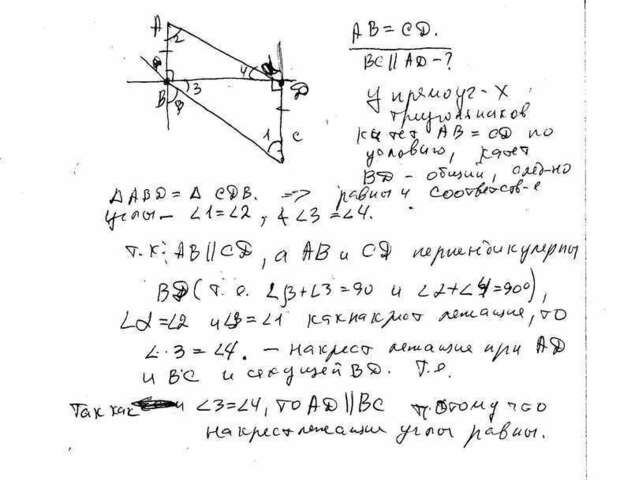 A
2
4
α
D
B
3
β
1
C
AB = CD.
BC || AD - ?
У прямоуг-х
треугольников
катет AB = CD по
условию, катет
BD - общий, след-но
△ABD = △CDB. => равны и соответств-е
углы - ∠1=∠2, ∠3=∠4.
т.к: AB||CD, а AB и CD перпендикулярны
BD (т.е. ∠β+∠3=90 и ∠α+∠4=90°),
∠α=∠2 и ∠β=∠1 как накрест лежащие, то
∠3=∠4. - накрест лежащие при AD
и BC и секущей BD. Т.е.
Так как ∠3=∠4, то AD||BC потому что
накрест лежащие углы равны.